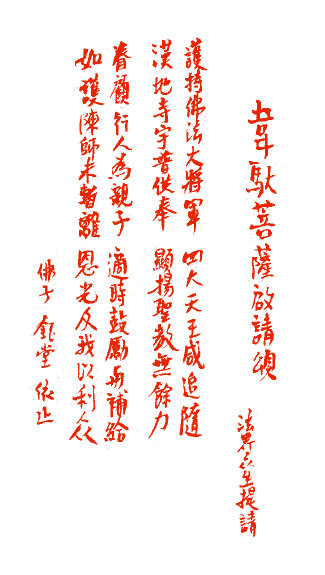 韋馱菩薩啟請頌
法界众生提請
護持佛法大將軍 四大天王咸追隨
漢地寺宇普供奉 顯揚聖教無餘力
眷顧行人為親子 適時鼓勵与補給
如護陳師未暫離 恩光及我以利众
佛子 鈺堂 依止